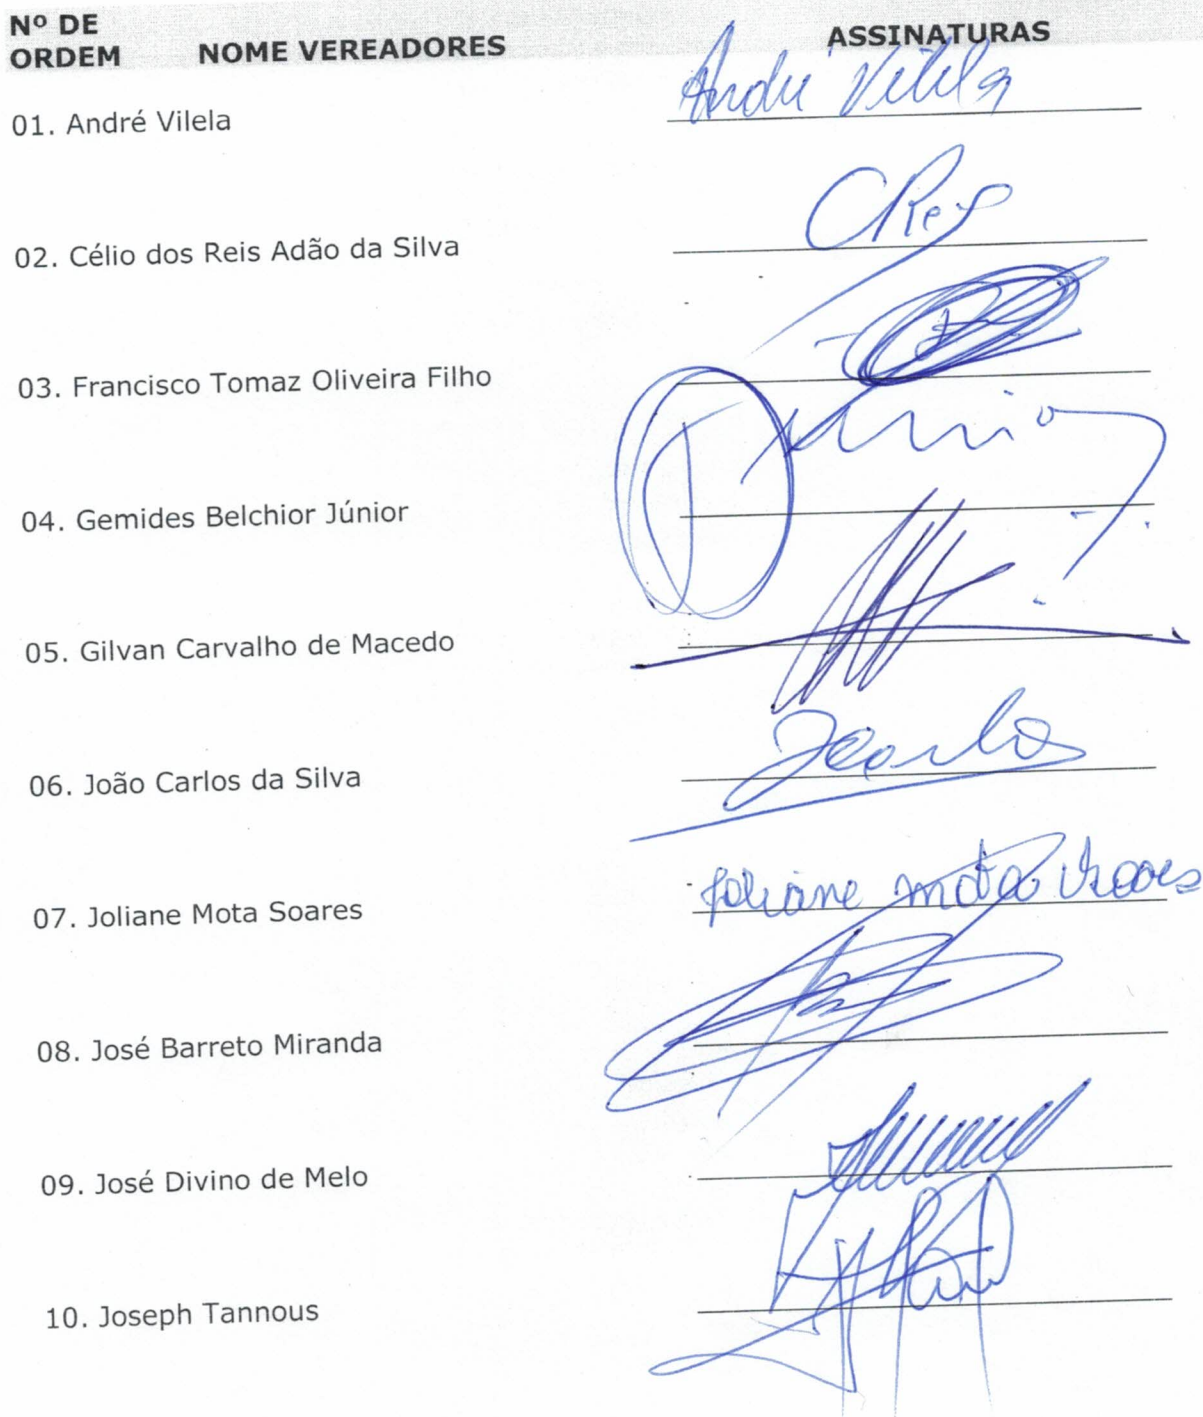 Nº DE
ORDEM NOME VEREADORES ASSINATURAS
01. André Vilela André Vilela
02. Célio dos Reis Adão da Silva CReis
03. Francisco Tomaz Oliveira Filho
04. Gemides Belchior Júnior
05. Gilvan Carvalho de Macedo
06. João Carlos da Silva JCarlos
07. Joliane Mota Soares Joliane Mota Soares
08. José Barreto Miranda
09. José Divino de Melo
10. Joseph Tannous